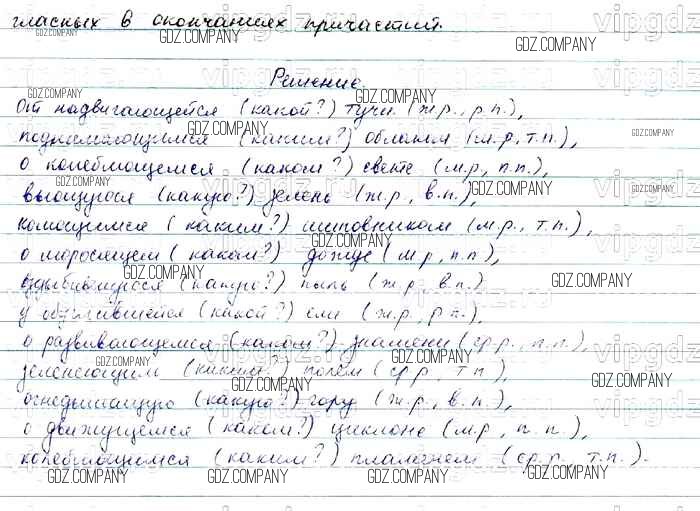 гласных в окончаниях причастий.
GDZ.COMPANY
Решение.
От надвигающейся (какой?) тучи (ж.р., р.п.),
поднимающимся (каким?) облаком (м.р., т.п.),
о колеблющемся (каком?) свете (м.р., п.п.),
вьющуюся (какую?) зелень (ж.р., в.п.),
колющимся (каким?) шиповником (м.р., т.п.),
о моросящем (каком?) дожде (м.р, п.п)
(какую?) пыль (ж.р, в.п.)
у (какой?) ели (ж.р., р.п.),
о развивающемся (каком?) знамени (ср.р., п.п.),
зеленеющим (каким?) полем (ср.р, т.п),
огнедышащую (какую?) гору (ж.р., в.п.),
о движущемся (каком?) циклоне (м.р, п.п.),
колеблющимся (каким?) пламенем (ср.р., т.п.).